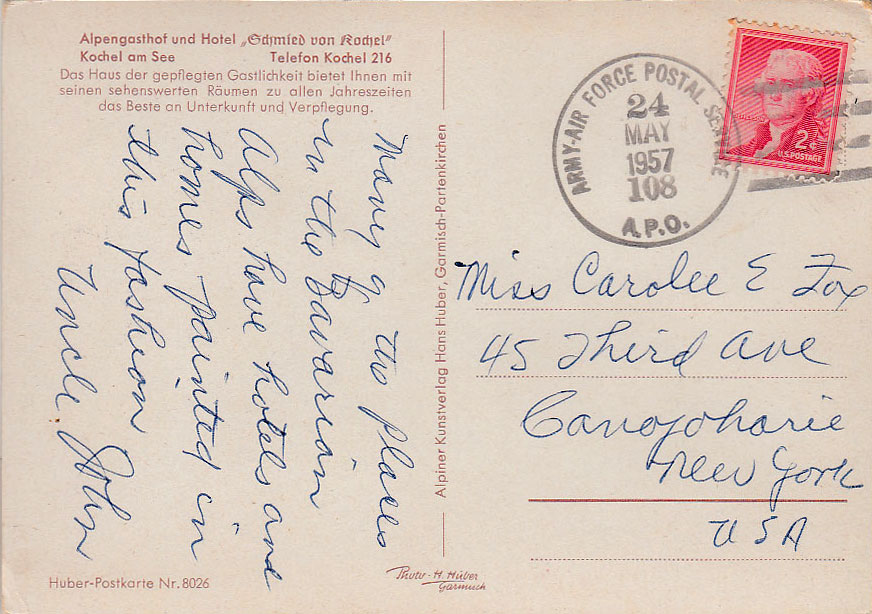 Alpengasthof und Hotel „Schmied von Kochel"
Kochel am See Telefon Kochel 216
Das Haus der gepflegten Gastlichkeit bietet Ihnen mit
seinen sehenswerten Räumen zu allen Jahreszeiten
das Beste an Unterkunft und Verpflegung.
Many of the places
in the Bavarian
Alps have hotels and
homes painted in
this fashion
Uncle John
Alpiner Kunstverlag Hans Huber, Garmisch-Partenkirchen
ARMY-AIR FORCE POSTAL SERVICE
24
MAY
1957
108
A.P.O.
2¢
U.S. POSTAGE
Miss Carolee E Fox
45 Third Ave
Canojoharie
New York
USA
Huber-Postkarte Nr. 8026
Photo-H. Huber
Garmisch